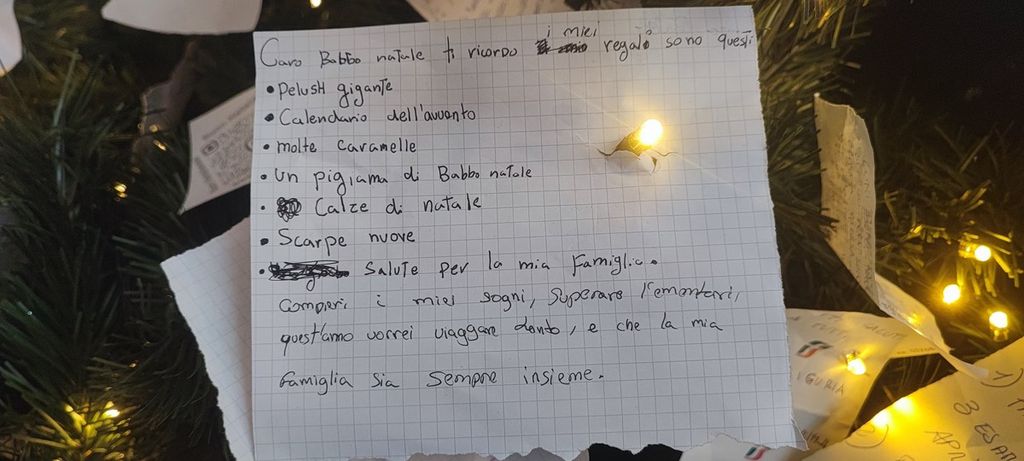 Caro Babbo natale ti ricordo i miei regalo sono questi
• Pelush gigante
• Calendario dell'avvento
• molte Caramelle
• un pigiama di Babbo natale
• Calze di natale
• Scarpe nuove
• Salute per la mia famiglia.
i miei sogni, Superare
quest'anno vorrei viaggare, e che la mia
famiglia sia sempre insieme.
IGURIA
1)
3 ESAM
2)